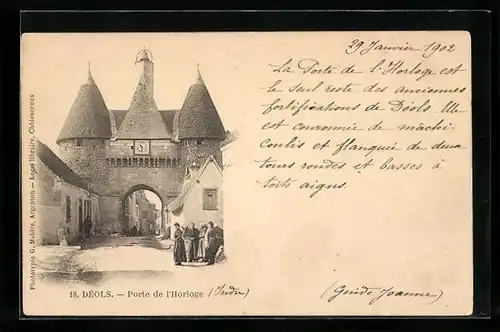 29 Janvier 1902
La Porte de l'Horloge est
le seul reste des anciennes
fortifications de Déols. Elle
est couronnée de mâchi-
coulis et flanquée de deux
tours rondes et basses à
toits aigus.
(Guide Joanne)
18. DÉOLS. — Porte de l'Horloge (Indre)
Phototypie G. Mabire, Argenton — Libraire, Châteauroux